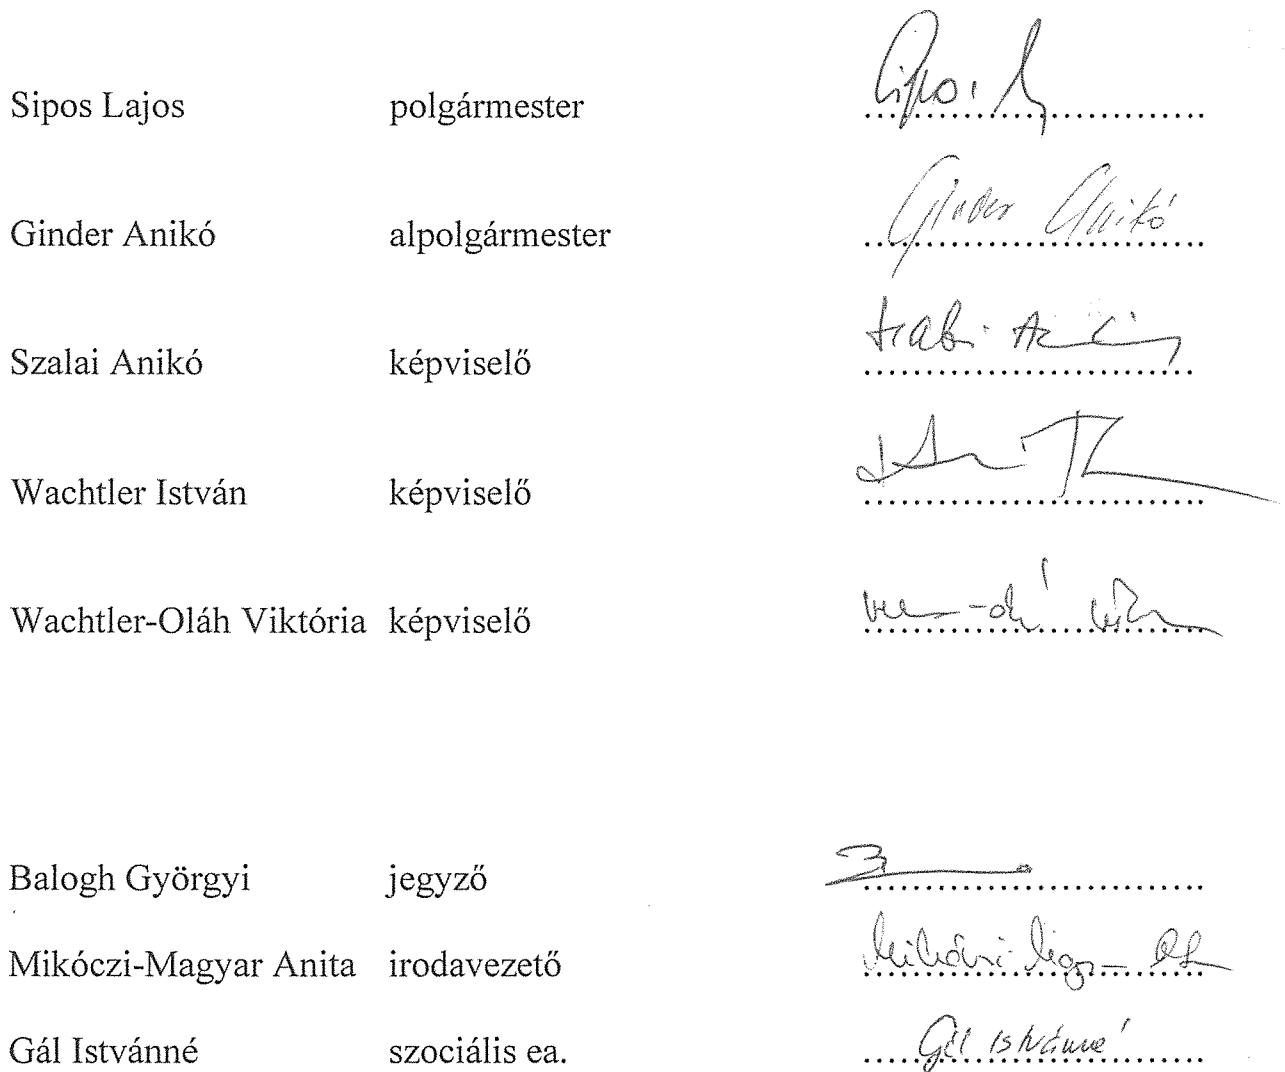 Sipos Lajos polgármester Sipos L
Ginder Anikó alpolgármester Ginder Anikó
Szalai Anikó képviselő
Wachtler István képviselő
Wachtler-Oláh Viktória képviselő
Balogh Györgyi jegyző
Mikóczi-Magyar Anita irodavezető
Gál Istvánné szociális ea. Gál Istvánné